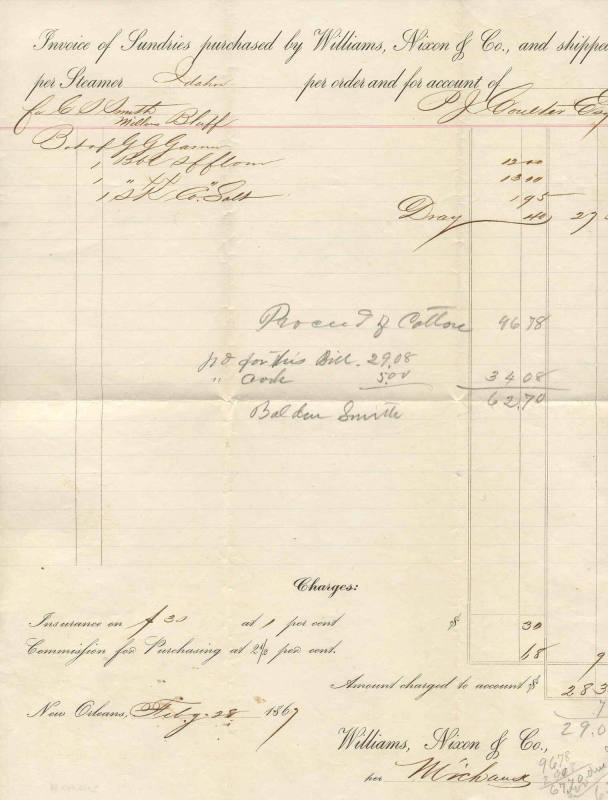 Invoice of Sundries purchased by Williams, Nixon & Co., and shipped
per Steamer Idaho per order and for account of
P J Coulter Esq
C S Smith
Millers Bluff
Bot of G G
1 Bbl Sf flour 12 00
1 " XX " 13 00
1 SK Co. Salt 1 95
Dray 40 27
Proceed of Cotton 96.78
pd for this Bill. 29.08
" 5.00 34 08
62.70
Bal due Smith
Charges:
Insurance on $ 30 at 1 per cent $ 30
Commission for Purchasing at 2½ per cent. 68 9
Amount charged to account $ 28 3
7
29.0
New Orleans, Feby 28 1867
Williams, Nixon & Co.,
per Michaux
9678